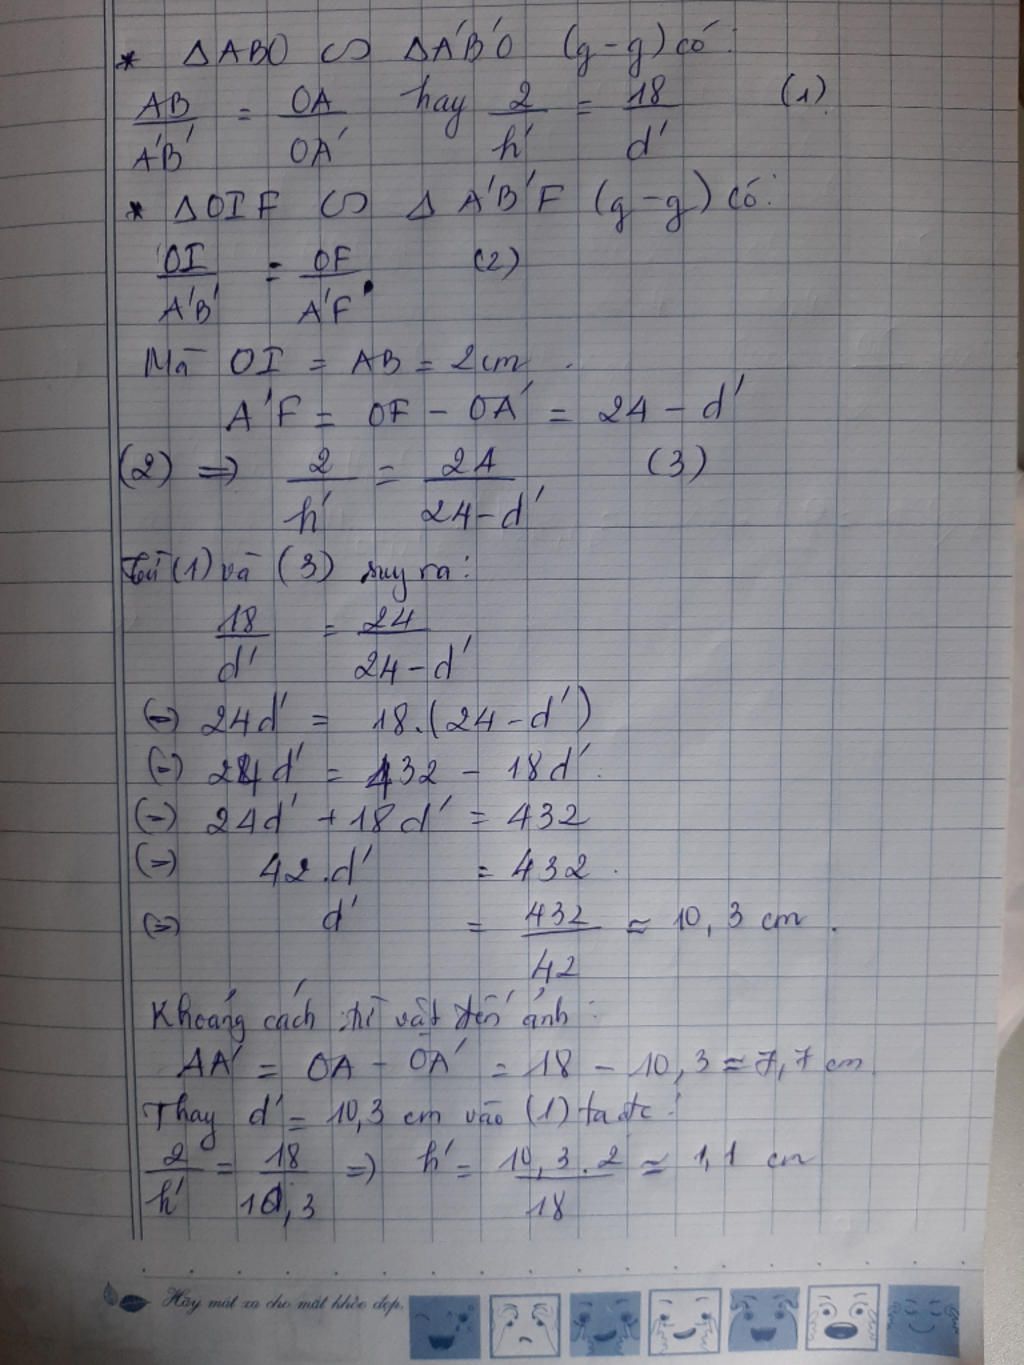 * ΔABO ∽ ΔA'B'O (g-g) có:
AB/A'B' = OA/OA' hay 2/h' = 18/d' (1)
* ΔOIF ∽ ΔA'B'F (g-g) có:
OI/A'B' = OF/A'F (2)
Mà OI = AB = 2cm.
A'F = OF - OA' = 24 - d'
(2) => 2/h' = 24/24-d' (3)
Từ (1) và (3) suy ra:
18/d' = 24/24-d'
(=) 24d' = 18.(24-d')
(=) 24d' = 432 - 18d'.
(=) 24d' + 18d' = 432
(=) 42.d' = 432.
(=) d' = 432/42 ≈ 10,3 cm.
Khoảng cách từ vật đến ảnh:
AA' = OA - OA' = 18 - 10,3 ≈ 7,7 cm
Thay d' = 10,3 cm vào (1) ta đc:
2/h' = 18/10,3 => h' = 10,3.2/18 ≈ 1,1 cm
Hãy mát xa cho mắt khỏe đẹp.